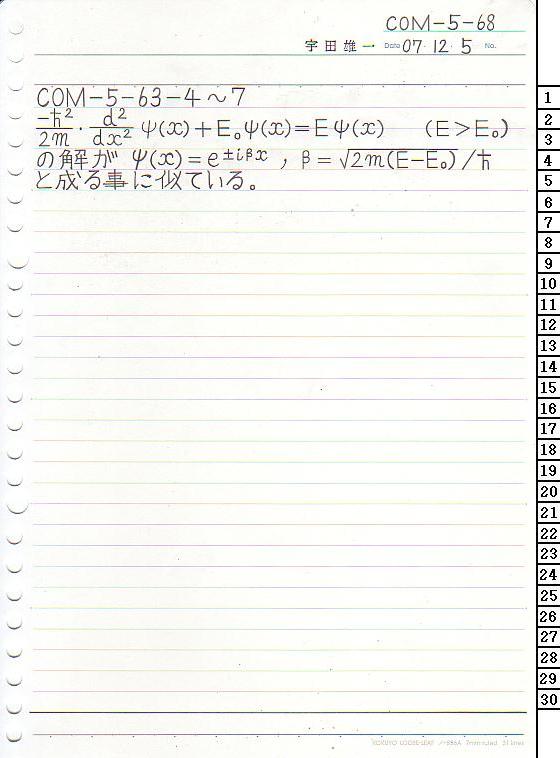 COM-5-68
宇田雄一 Date 07・12・5 No.
COM-5-63-4～7
-ħ²/2m・d²/dx² ψ(x)+E₀ψ(x)=Eψ(x) (E>E₀)
の解が ψ(x)=e^{±iβx}, β=√2m(E-E₀)/ħ
と成る事に似ている。
1
2
3
4
5
6
7
8
9
10
11
12
13
14
15
16
17
18
19
20
21
22
23
24
25
26
27
28
29
30
KOKUYO LOOSE-LEAF ノ-836A 7mm ruled 31 lines